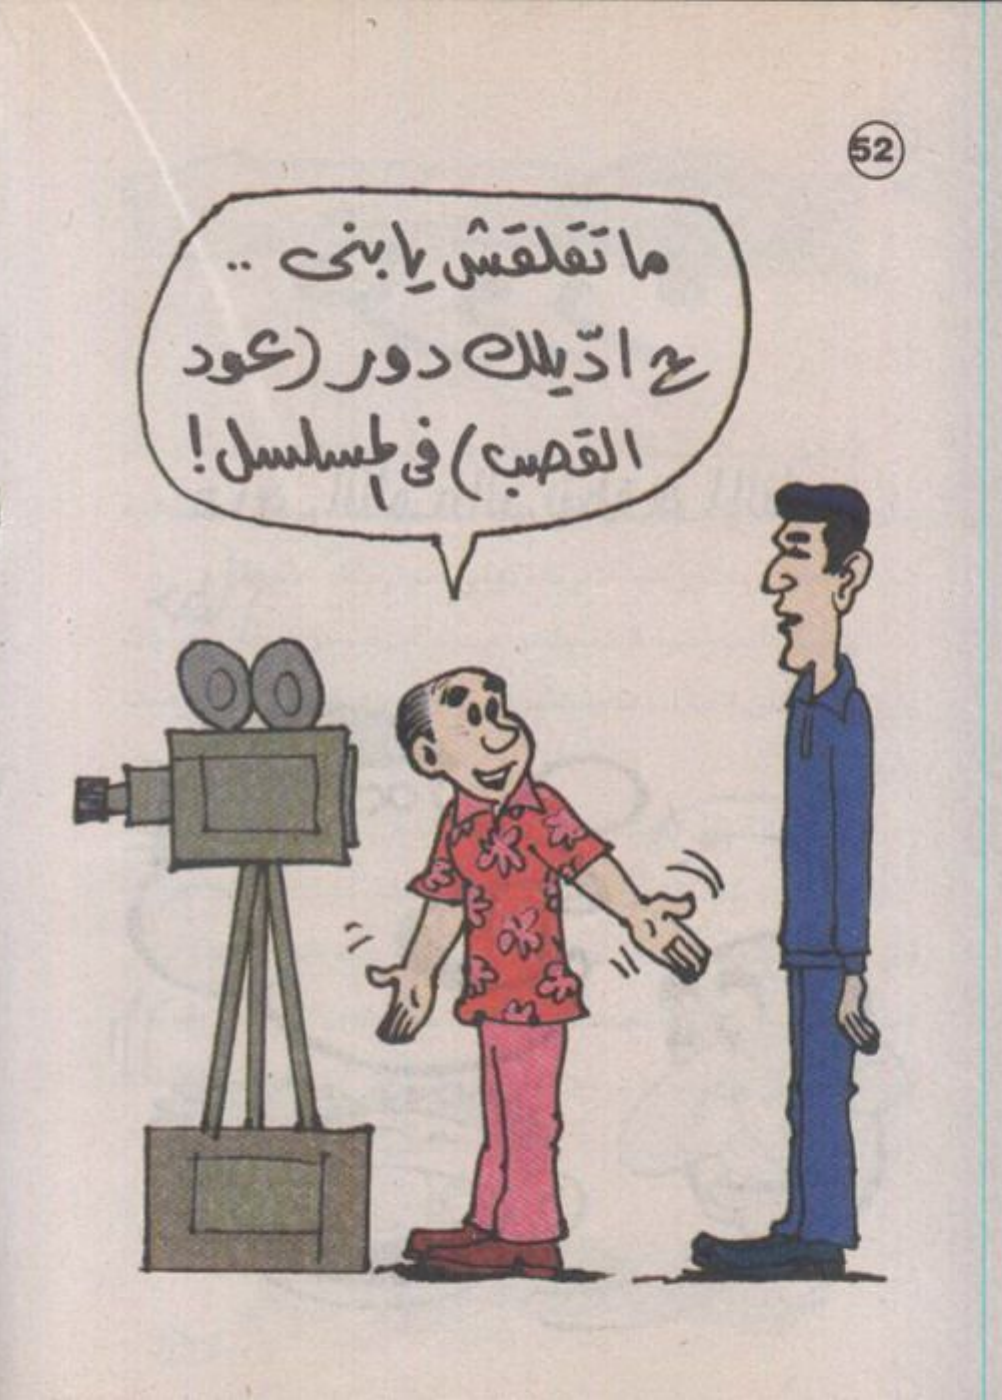 52
ما تقلقش يا بنى ..
ح ادّيلك دور (عود
القصب) فى المسلسل!